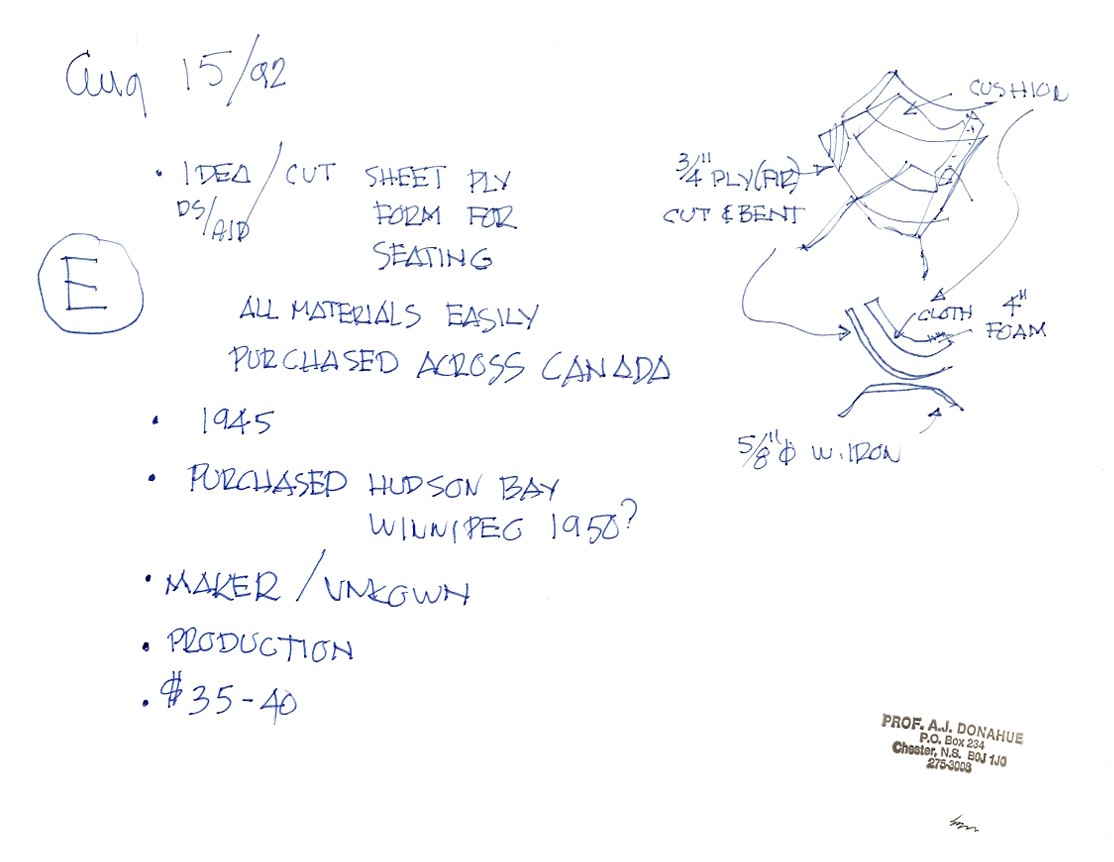 Aug 15/92
• IDEA / CUT SHEET PLY
DS/AJD FORM FOR
SEATING
E
ALL MATERIALS EASILY
PURCHASED ACROSS CANADA
• 1945
• PURCHASED HUDSON BAY
WINNIPEG 1950?
• MAKER / UNKOWN
• PRODUCTION
• $35-40
CUSHION
3/4" PLY(FIR)
CUT & BENT
CLOTH 4"
FOAM
5/8"φ W.IRON
PROF. A.J. DONAHUE
P.O. Box 234
Chester, N.S. B0J 1J0
275-3008